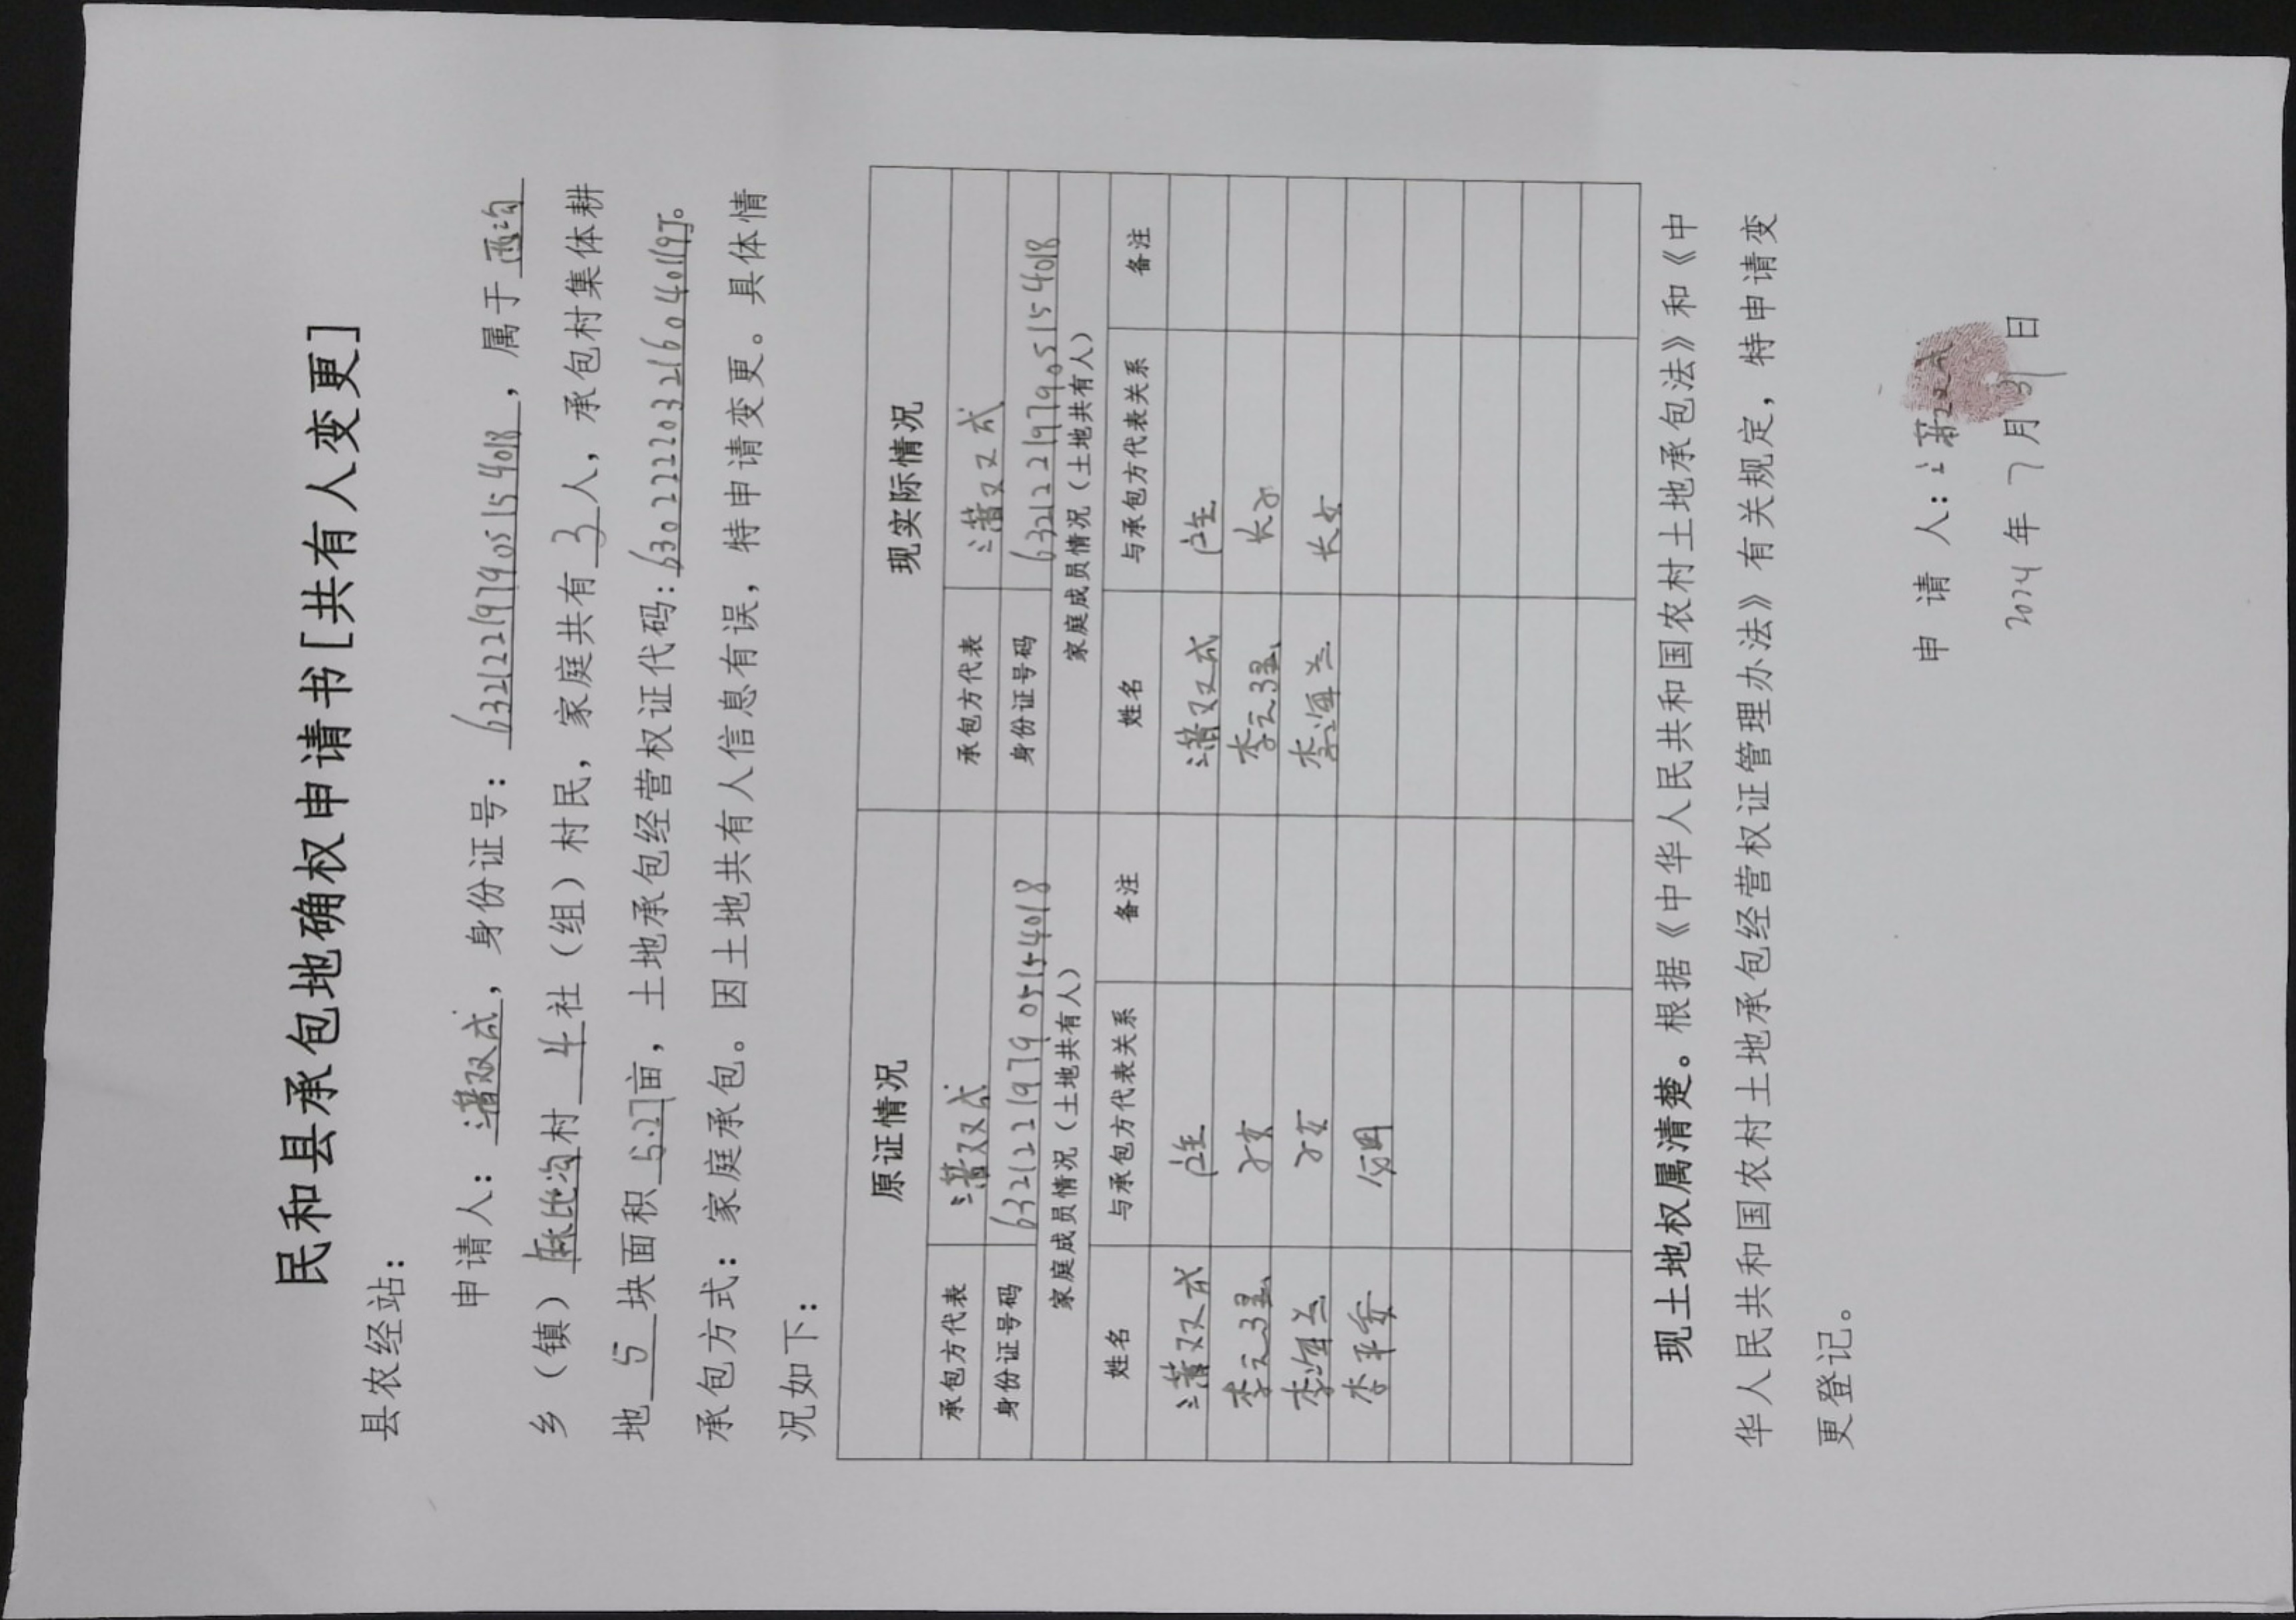 民和县承包地确权申请书[共有人变更]
县农经站：
申请人：满双成，身份证号：632122197905154018，属于西沟
乡（镇）麻地沟村 4 社（组）村民，家庭共有 3 人，承包村集体耕
地 5 块面积 5.27亩，土地承包经营权证代码：630222203216040119J。
承包方式：家庭承包。因土地共有人信息有误，特申请变更。具体情
况如下：
原证情况 现实际情况
承包方代表 满双成 承包方代表 满双成
身份证号码 632122197905154018 身份证号码 632122197905154018
家庭成员情况（土地共有人） 家庭成员情况（土地共有人）
姓名 与承包方代表关系 备注 姓名 与承包方代表关系 备注
满双成 户主 满双成 户主
李元强 子女 李元强 长子
李海兰 子女 李海兰 长女
李平安
现土地权属清楚。根据《中华人民共和国农村土地承包法》和《中
华人民共和国农村土地承包经营权证管理办法》有关规定，特申请变
更登记。
申 请 人：满双成
2024 年 7 月 31 日